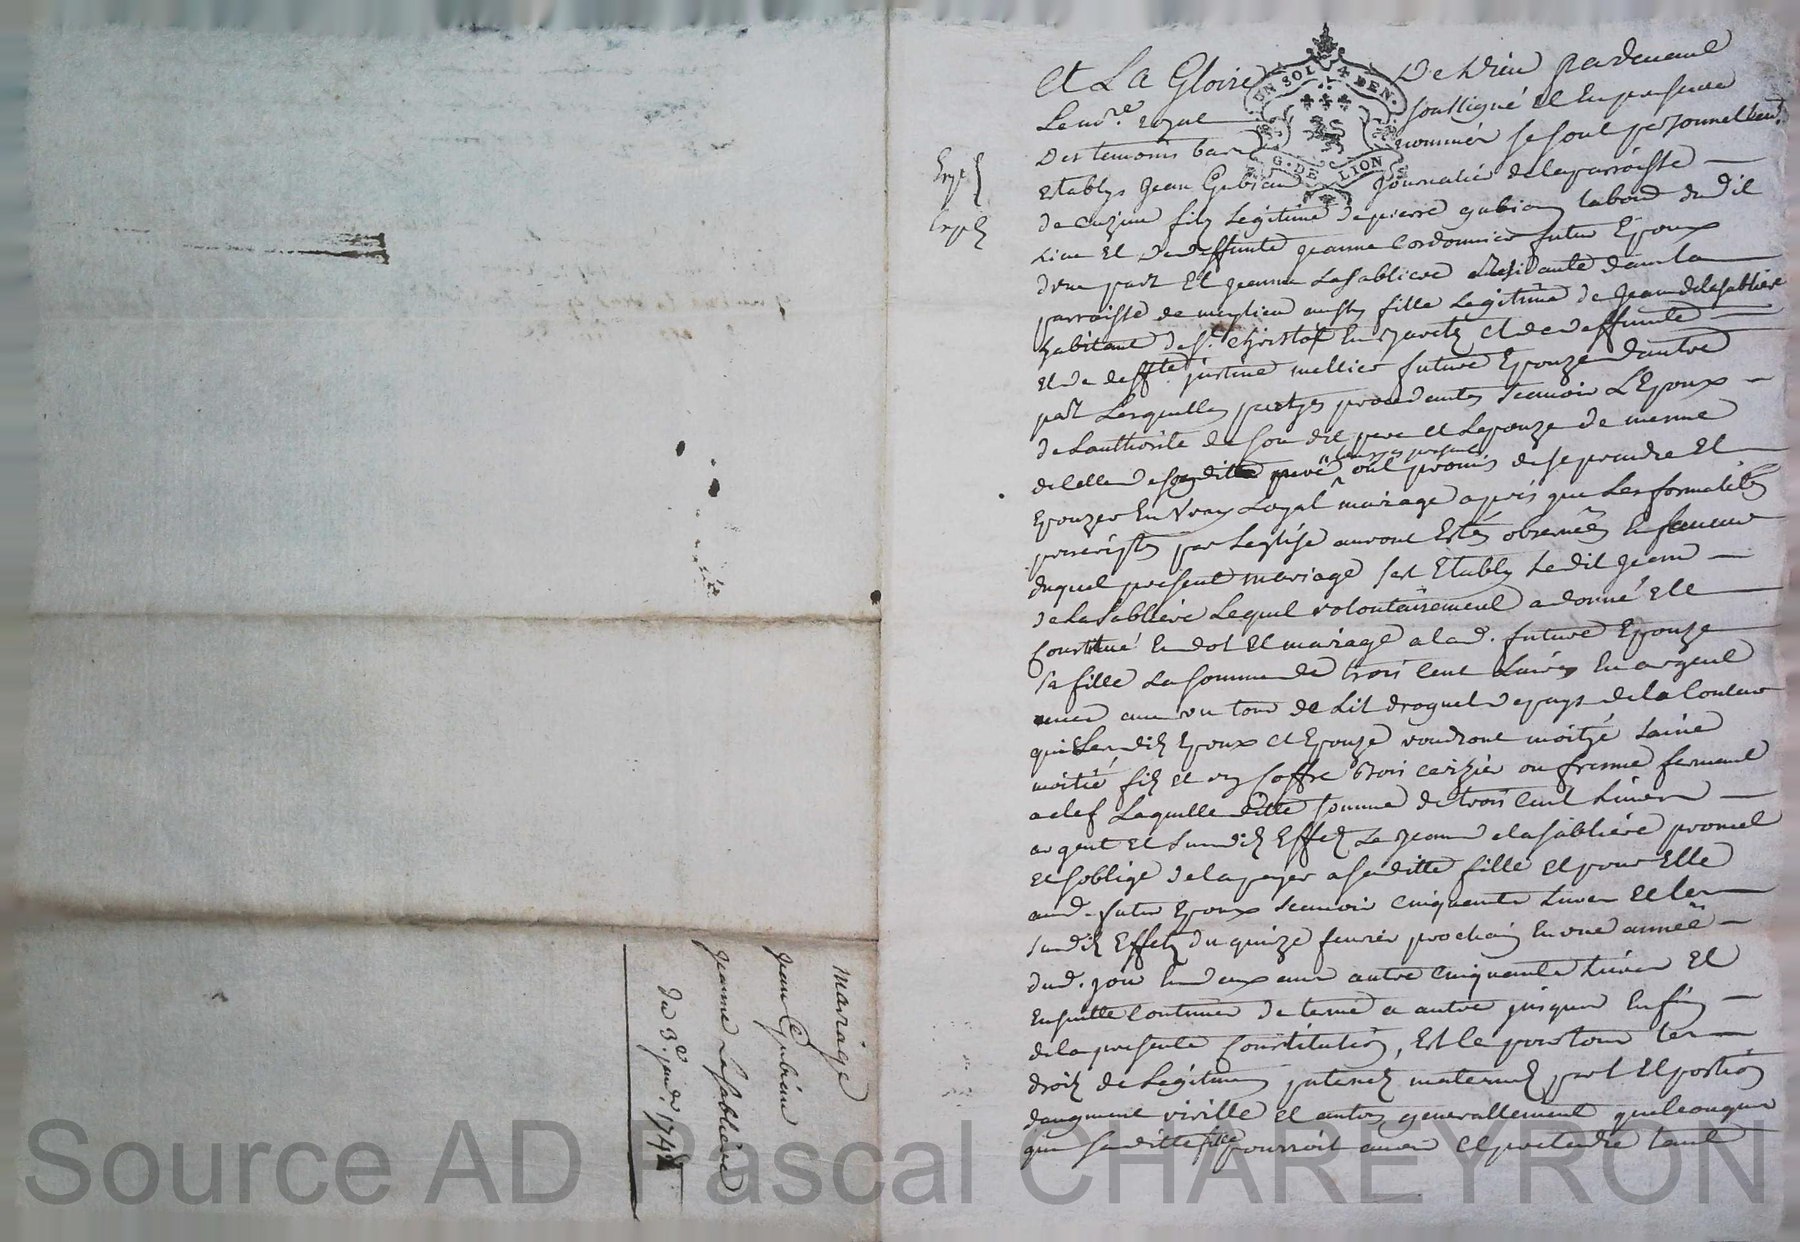 Et La Gloire De Dieu Pardevant
Le no.re royal soussigné Et En presence
Des temoins bas nommés se sont personnellem.t
Etablys Jean Gubian Journalié de la parroisse
de Cuzieu fils Legitime de pierre gubian labour du dit
Lieu Et De deffunte jeanne Cordonnier futur Epoux
d'une part Et Jeanne Lasabliere Residante dans la
parroisse de meylieu aussy fille Legitime de Jean delasabliere
habitant de St. Christof En Jaretz et de deffunte
et de deffte justine mellier future Epouze d'autre
part Lesquelles partyes procedantes scauoir L'Epoux
de Lauthorité de son dit pere et Lepouze de mesme
de celle de son dit pere ont promis de se prendre Et
Epouzer En vray Loyal mariage après que Les formalités
prescriptes par Leglise auront Estés observées En faueur
duquel present mariage s'est Etably Ledit Jean
de La Sabliere Lequel volontairement a donné et
Constitué En dot Et mariage a lad. future Epouze
sa fille La somme de trois cent Livres En argent
avec un tour de Lit droguet depays de la Couleur
que Lesdits Epoux et Epouze voudront moityé Laine
moitié fil et un Coffre bois cerizier ou fresne fermant
a clef Laquelle ditte somme de trois Cent Livres
argent et susdits Effets Le Jean delasabliere promet
et soblige de la payer a saditte fille et pour Elle
aud. futur Epoux scauoir Cinquante Livres et les
susdits Effets du quinze feurier prochain En une année
dud. jour En deux ans autre Cinquante Livres Et
Ensuitte Continuer de terme a autre jusques En fin
de la presente Constitution, Et Le pour tous les
droits de Legitime paternels maternels part Et portion
daugment virille et autres generallement quelconques
que saditte fille pourroit auoir et pretendre tant
mariage
jean Gubian
jeanne Lasabliere
du 3.e janu.r 174
UN SOL 4 DEN.
G. DE LION
Source AD Pascal CHAREYRON